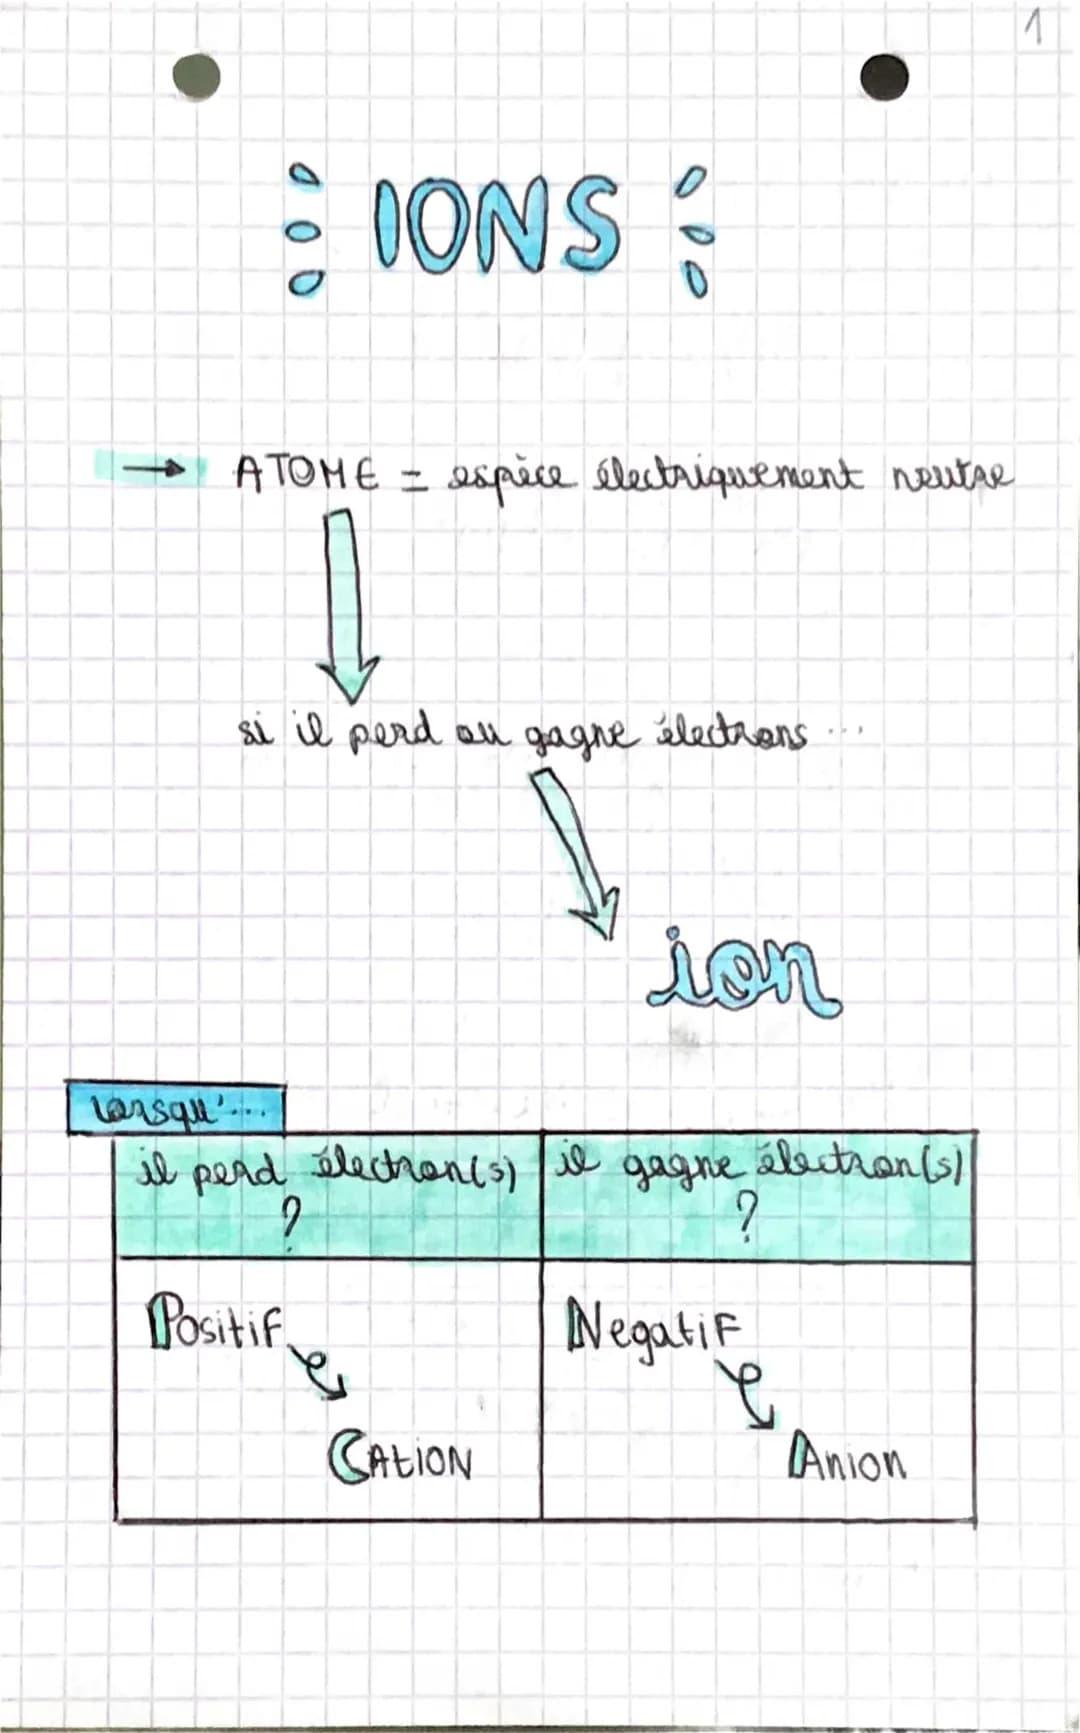 1
IONS
→ ATOME = espèce électriquement neutre
si il perd ou gagne électrons ...
ion
lorsqu'...
il perd électron(s) ?
il gagne électron(s) ?
Positif
CAtION
Negatif
Anion